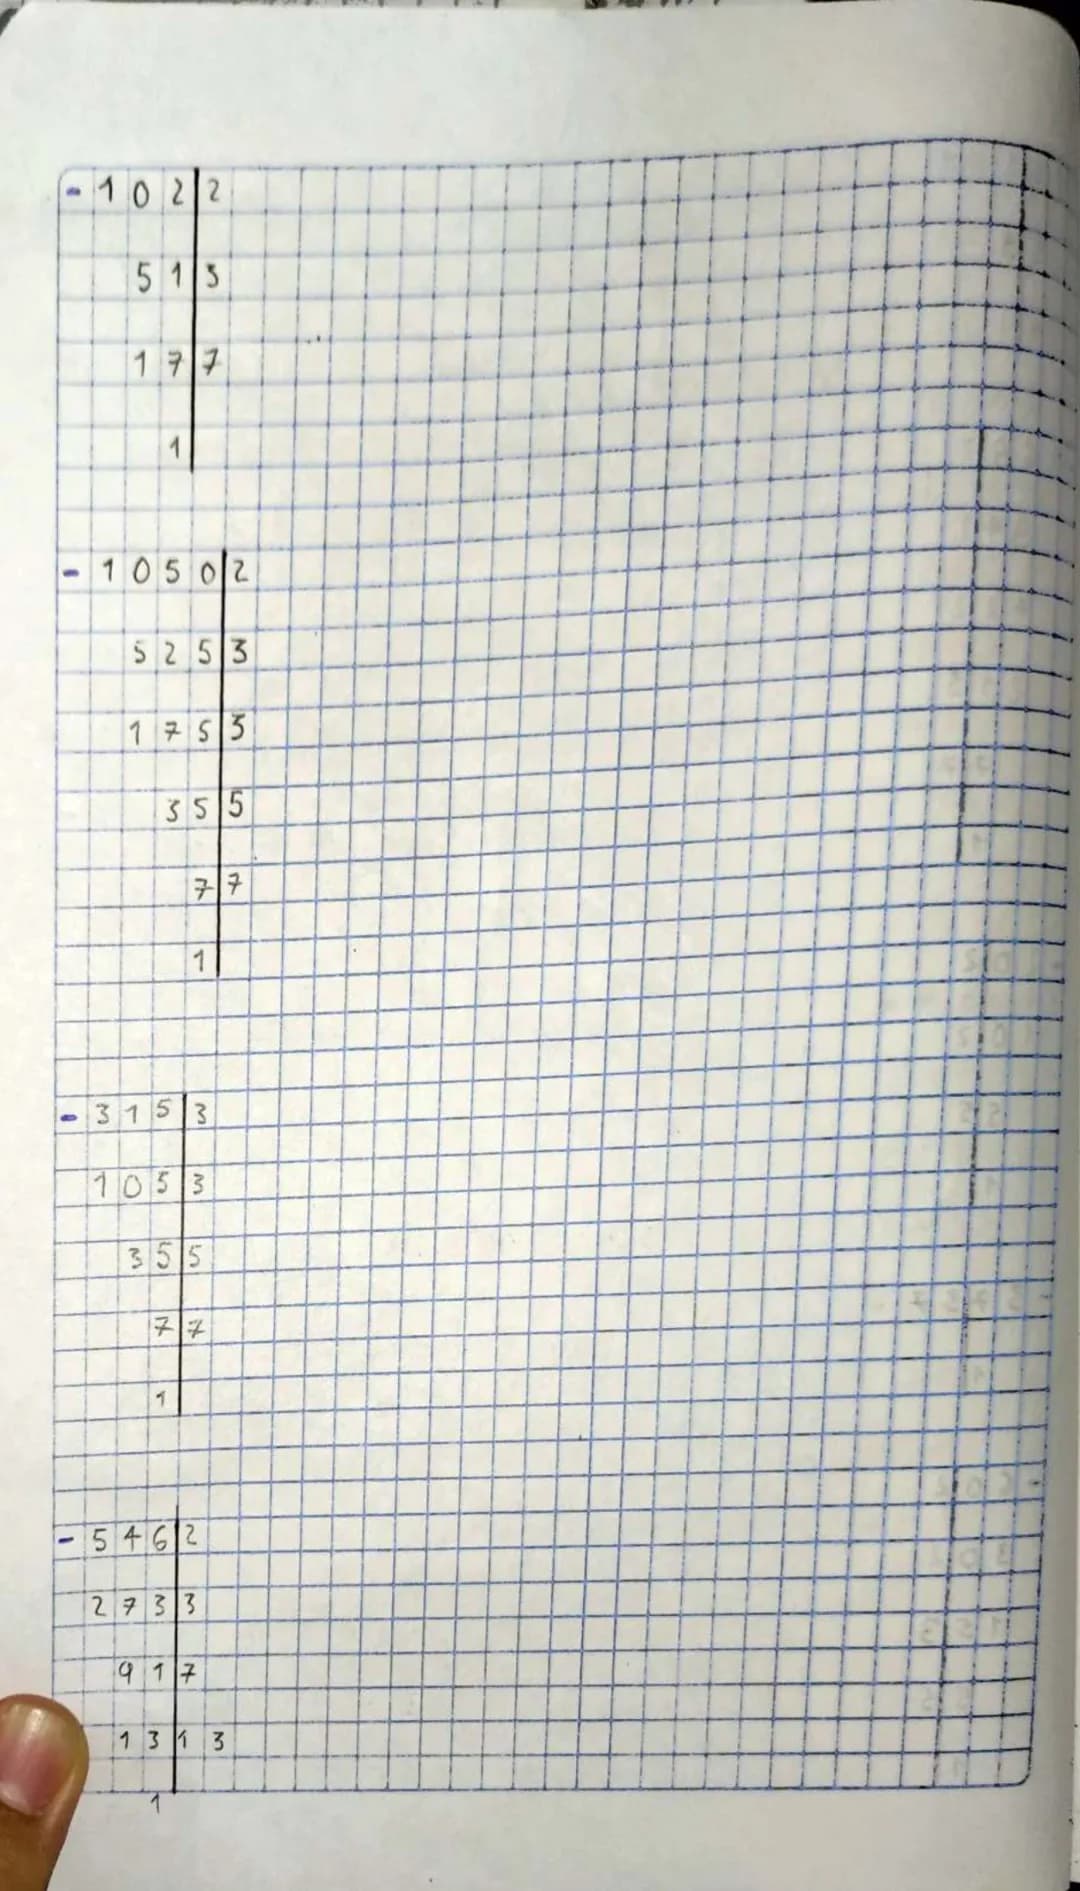 - 102|2
51|3
17|7
1|
- 1050|2
525|3
175|5
35|5
7|7
1|
- 315|3
105|3
35|5
7|7
1|
- 546|2
273|3
91|7
13|13
1|